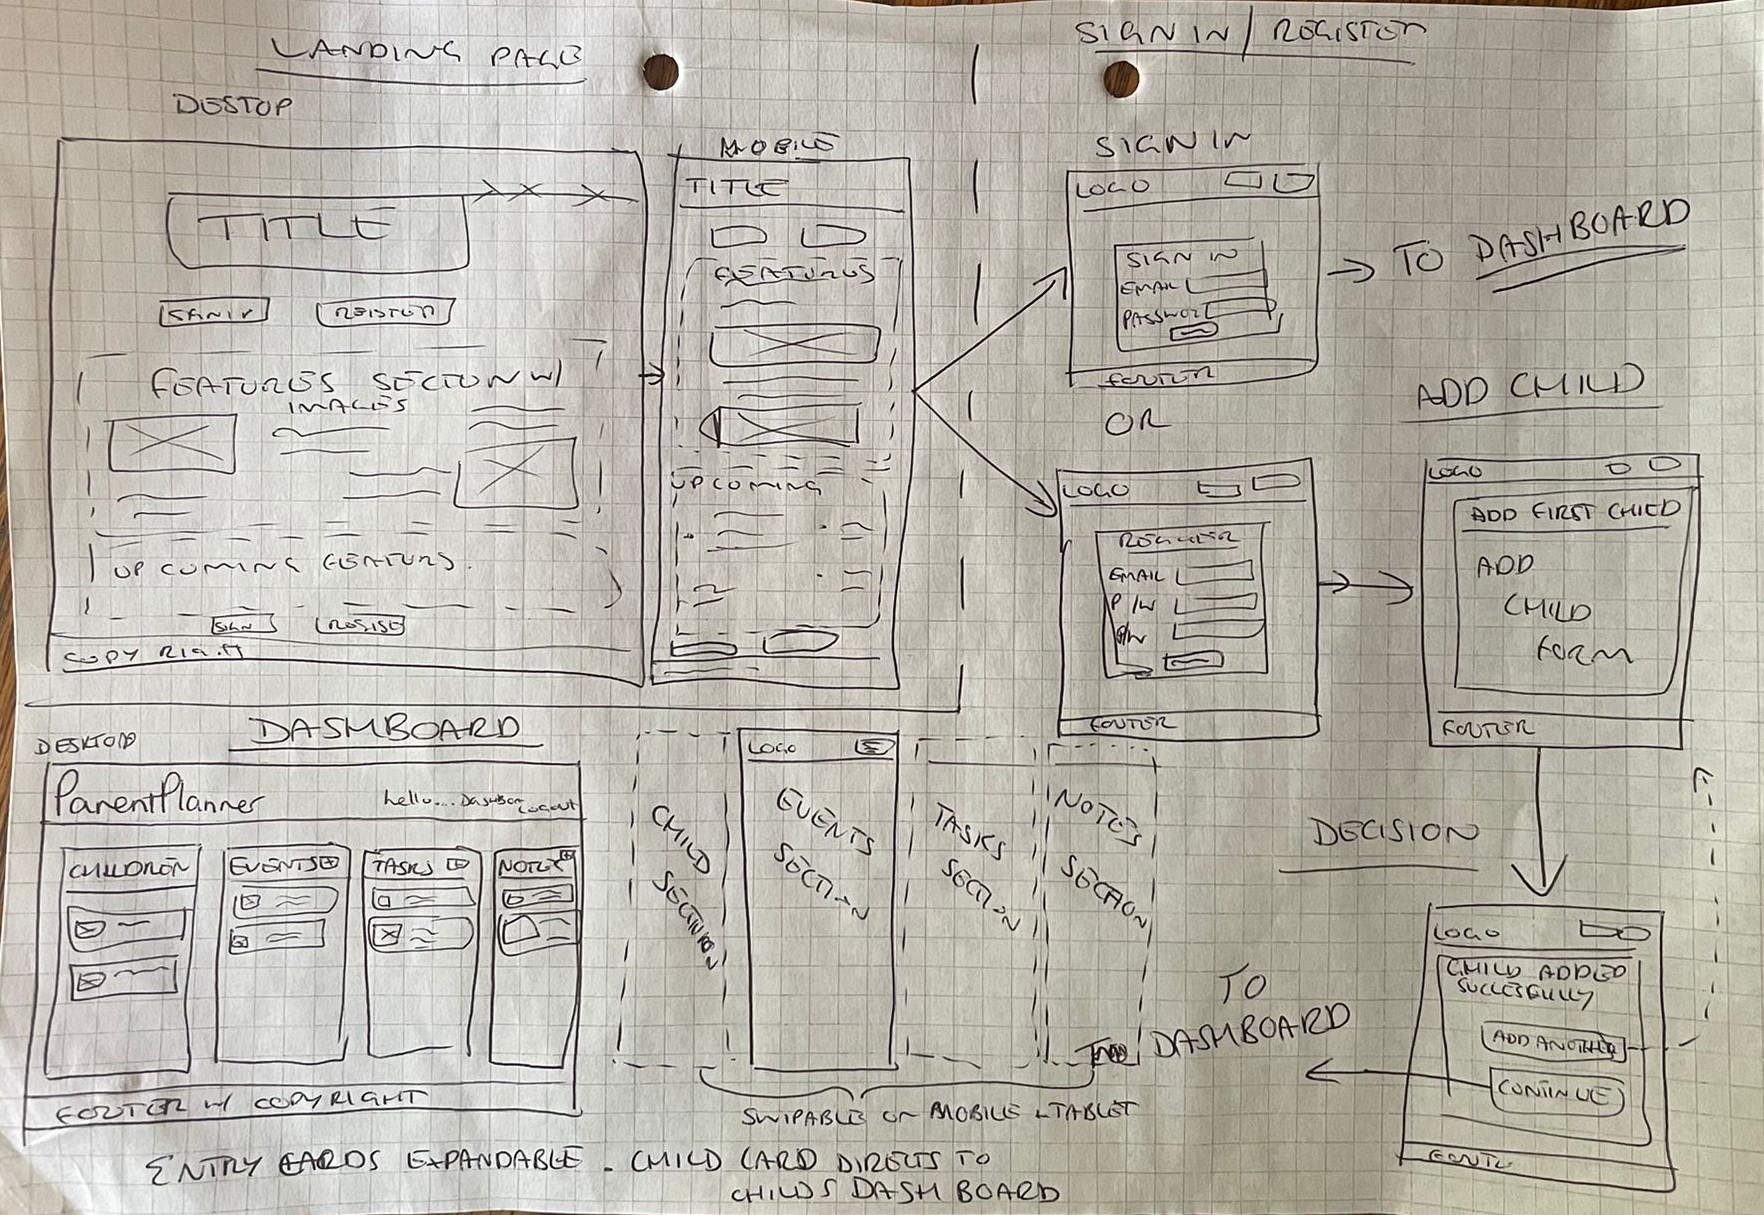 LANDING PAGE
DESTOP
TITLE
SIGNIN
REGISTER
FEATURES SECTION W/
IMAGES
UPCOMING FEATURS.
SIGN
COPY RIGHT
MOBILE
TITLE
FEATURES
UPCOMING
SIGN IN / REGISTER
SIGN IN
LOGO
SIGN IN
EMAIL
PASSWORD
FOOTER
TO DASHBOARD
OR
LOGO
REGISTER
EMAIL
P/W
P/W
FOOTER
ADD CHILD
LOGO
ADD FIRST CHILD
ADD
CHILD
FORM
FOOTER
DECISION
LOGO
CHILD ADDED
SUCCESFULLY
ADD ANOTHER
CONTINUE
TO
DASHBOARD
DASHBOARD
DESKTOP
ParentPlanner
hello... Dashboard Logout
CHILDREN
EVENTS +
TASKS +
NOTES +
FOOTER W/ COPYRIGHT
CHILD
SECTION
LOGO
EVENTS
SECTION
TASKS
SECTION
NOTES
SECTION
SWIPABLE ON MOBILE + TABLET
ENTRY CARDS EXPANDABLE. CHILD CARD DIRECTS TO
CHILDS DASHBOARD